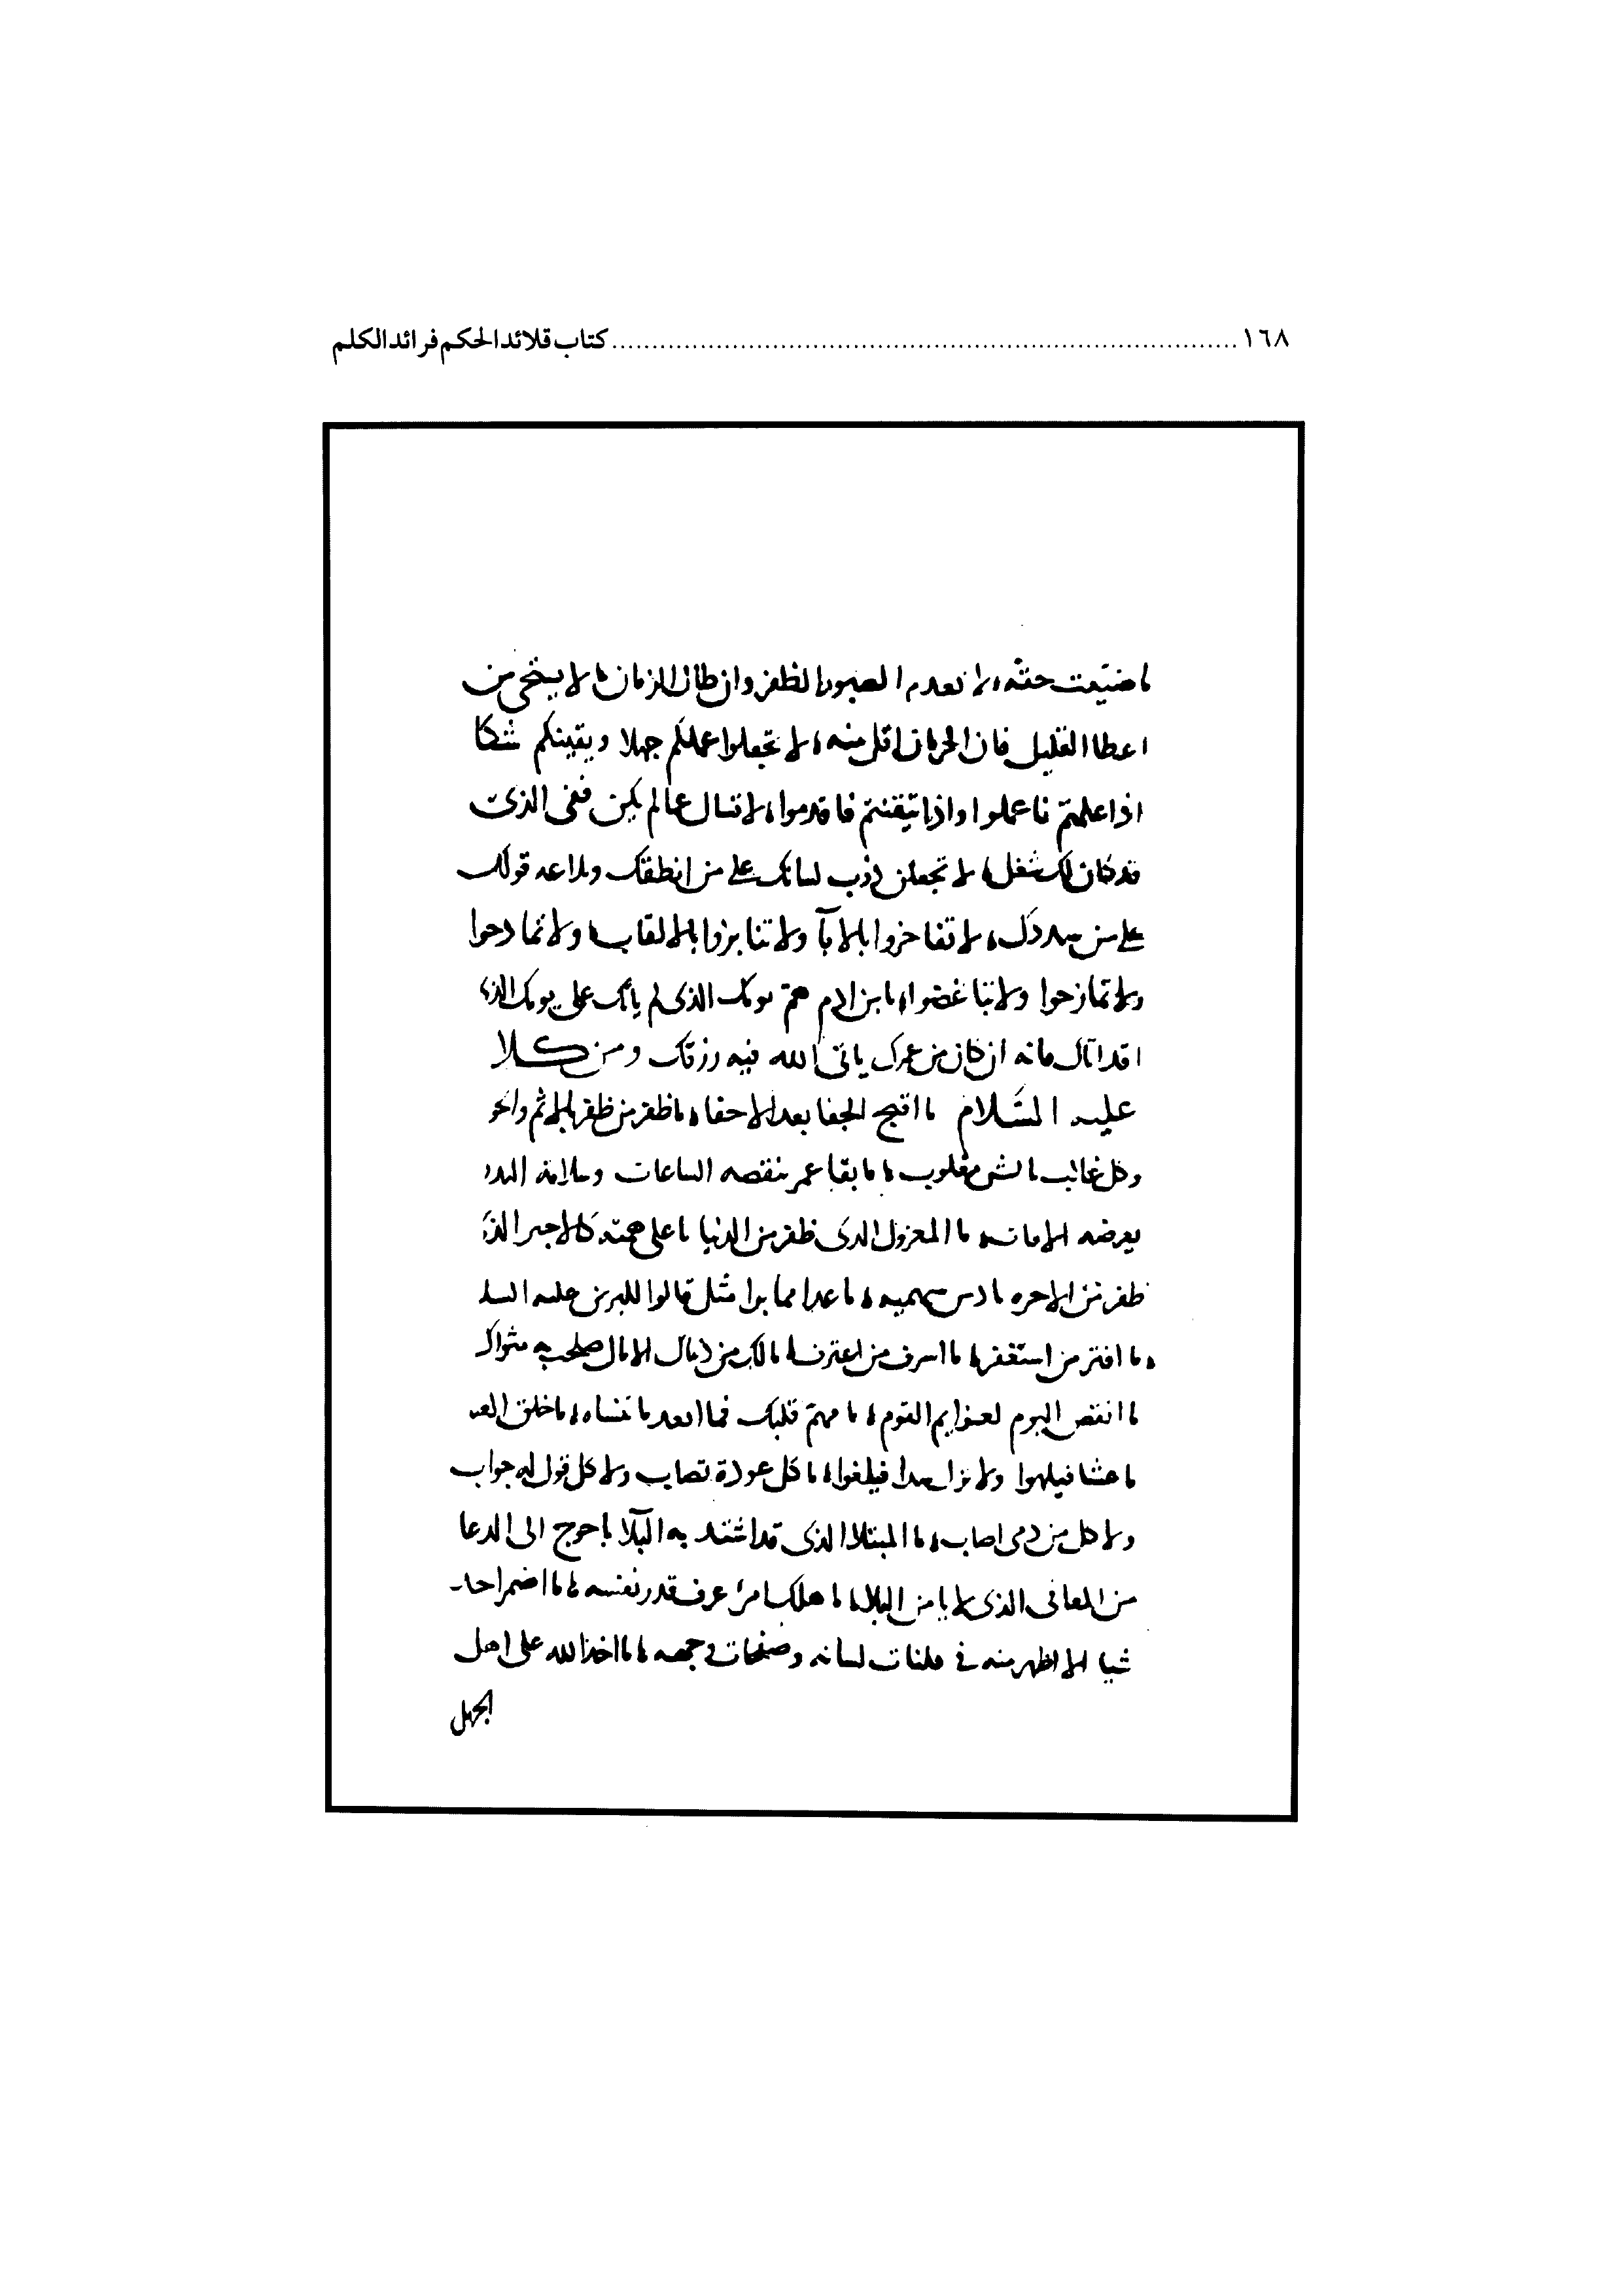 ١٦٨ ........ كتاب قلائد الحكم فرائد الكلم
ما ضيّعت حقّه لا يعدم الصبور الظفر وان طال الزمان لا يستحى من
اعطا القليل فان الحرمان اقل منه لا تجعلوا علمكم جهلا ويقينكم شكا
اذا علمتم فاعملوا واذا تيقنتم فاقدموا لا تسال عما لم يكن ففى الذى
قد كان لك شغل لا تجعلن ذرب لسانك على من انطقك وبلاغه قولك
على من سددك لا تفاخروا بالابآ ولا تنابزوا بالالقاب ولا تمادحوا
ولا تمازحوا ولا تباغضوا يا بن ادم هم يومك الذى لم ياتك على يومك الذى
قد اتاك فانه ان كان من عمرك ياتى الله فيه رزقك ومن كلا
عليه السّلام ما اقبح الجفا بعد الاخا ما ظفر من ظفر بالاثم واخو
وكل غالب بالشر مغلوب ما بقا عمر تنقصه الساعات وسلامة البدن
يعرضه الافات ما المعزول الذى ظفر من الدنيا باعلى همته كالاخر الذى
ظفر من الاخره بادنى سهميه ما عدا مما بدا مثل قالوا للزبير عليه السلا
ما افتر من استغفر ما اسرف من اعترف مالك من دنياك الا ما اصلحت به مثواك
ما انقض اليوم لعزايم القوم ما مهم قلبك فما ابعد ما تنساه ما خلق العبد
عبثا فيلهوا ولا ترك سدا فيلغوا ما كل عورة تصاب ولا كل قول له جواب
ولا كل من رمى اصاب ما المبتلا الذى قد اشتد به البلآ باحوج الى الدعا
من المعافى الذى لا يامن البلا ما هلك امرؤ عرف قدر نفسه ما اضمر احد
شيا الا اظهر منه فى فلتات لسانه وصفحات وجهه ما اخذ الله على اهل
الجهل